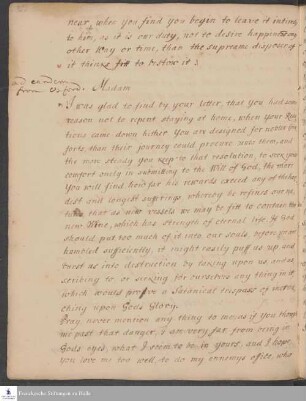 near, when you find you begin to leave it intire
to him, as it is our duty, not to desire happiness any
other way or time, than the supreme disposer of
it thinks fit to bestow it.
from Oxford. Madam
I was glad to find by your letter, that you had some
reason not to repent staying at home, when your Rela
tions came down hither. You are designed for nobler com
forts, than their journey could procure unto them, and
the more steady you keep in that resolution, to seek your
comfort only in submitting to the Will of God, the more
You will find how far his rewards exceed any of the har
dest and longest sufferings, whereby he refines our na
ture that as new vessels we may be fit to contain the
new Wine, which has strength of eternal life. If God
should put too much of it into our souls, before we are
humbled sufficiently, it might easily puff us up and
burst us into destruction by seizing upon us and a
scribing to, or seeking for ourselves any thing in it
which would prove a Satanical trespass of incroa
ching upon Gods Glory.
Pray never mention any thing to me, as if you thought
me past that danger, I am very far from being in
Gods eyes, what I seem to be in yours, and I hope
you love me too well, to do my ennemys office, who
Franckesche Stiftungen zu Halle